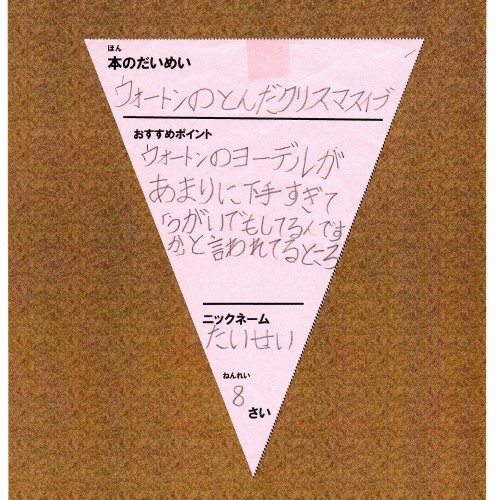 ほん
本のだいめい
ウォートンのとんだクリスマスイブ
おすすめポイント
ウォートンのヨーデルが
あまりに下手すぎて
「うがいでもしてるんです
か」と言われてるところ
ニックネーム
たいせい
ねんれい
8 さい